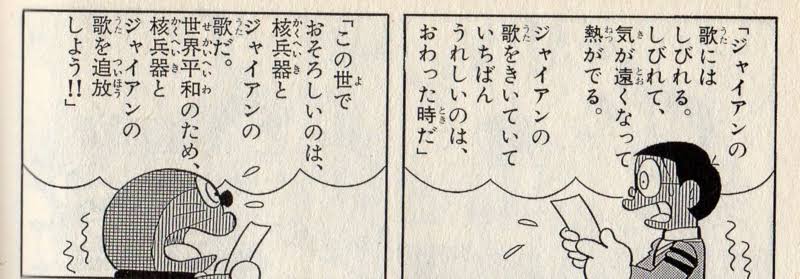 「ジャイアンの
歌には
しびれる。
しびれて、
気が遠くなって
熱がでる。
ジャイアンの
歌をきいていて
いちばん
うれしいのは、
おわった時だ」
「この世で
おそろしいのは、
核兵器と
ジャイアンの
歌だ。
世界平和のため、
核兵器と
ジャイアンの
歌を追放
しよう!!」